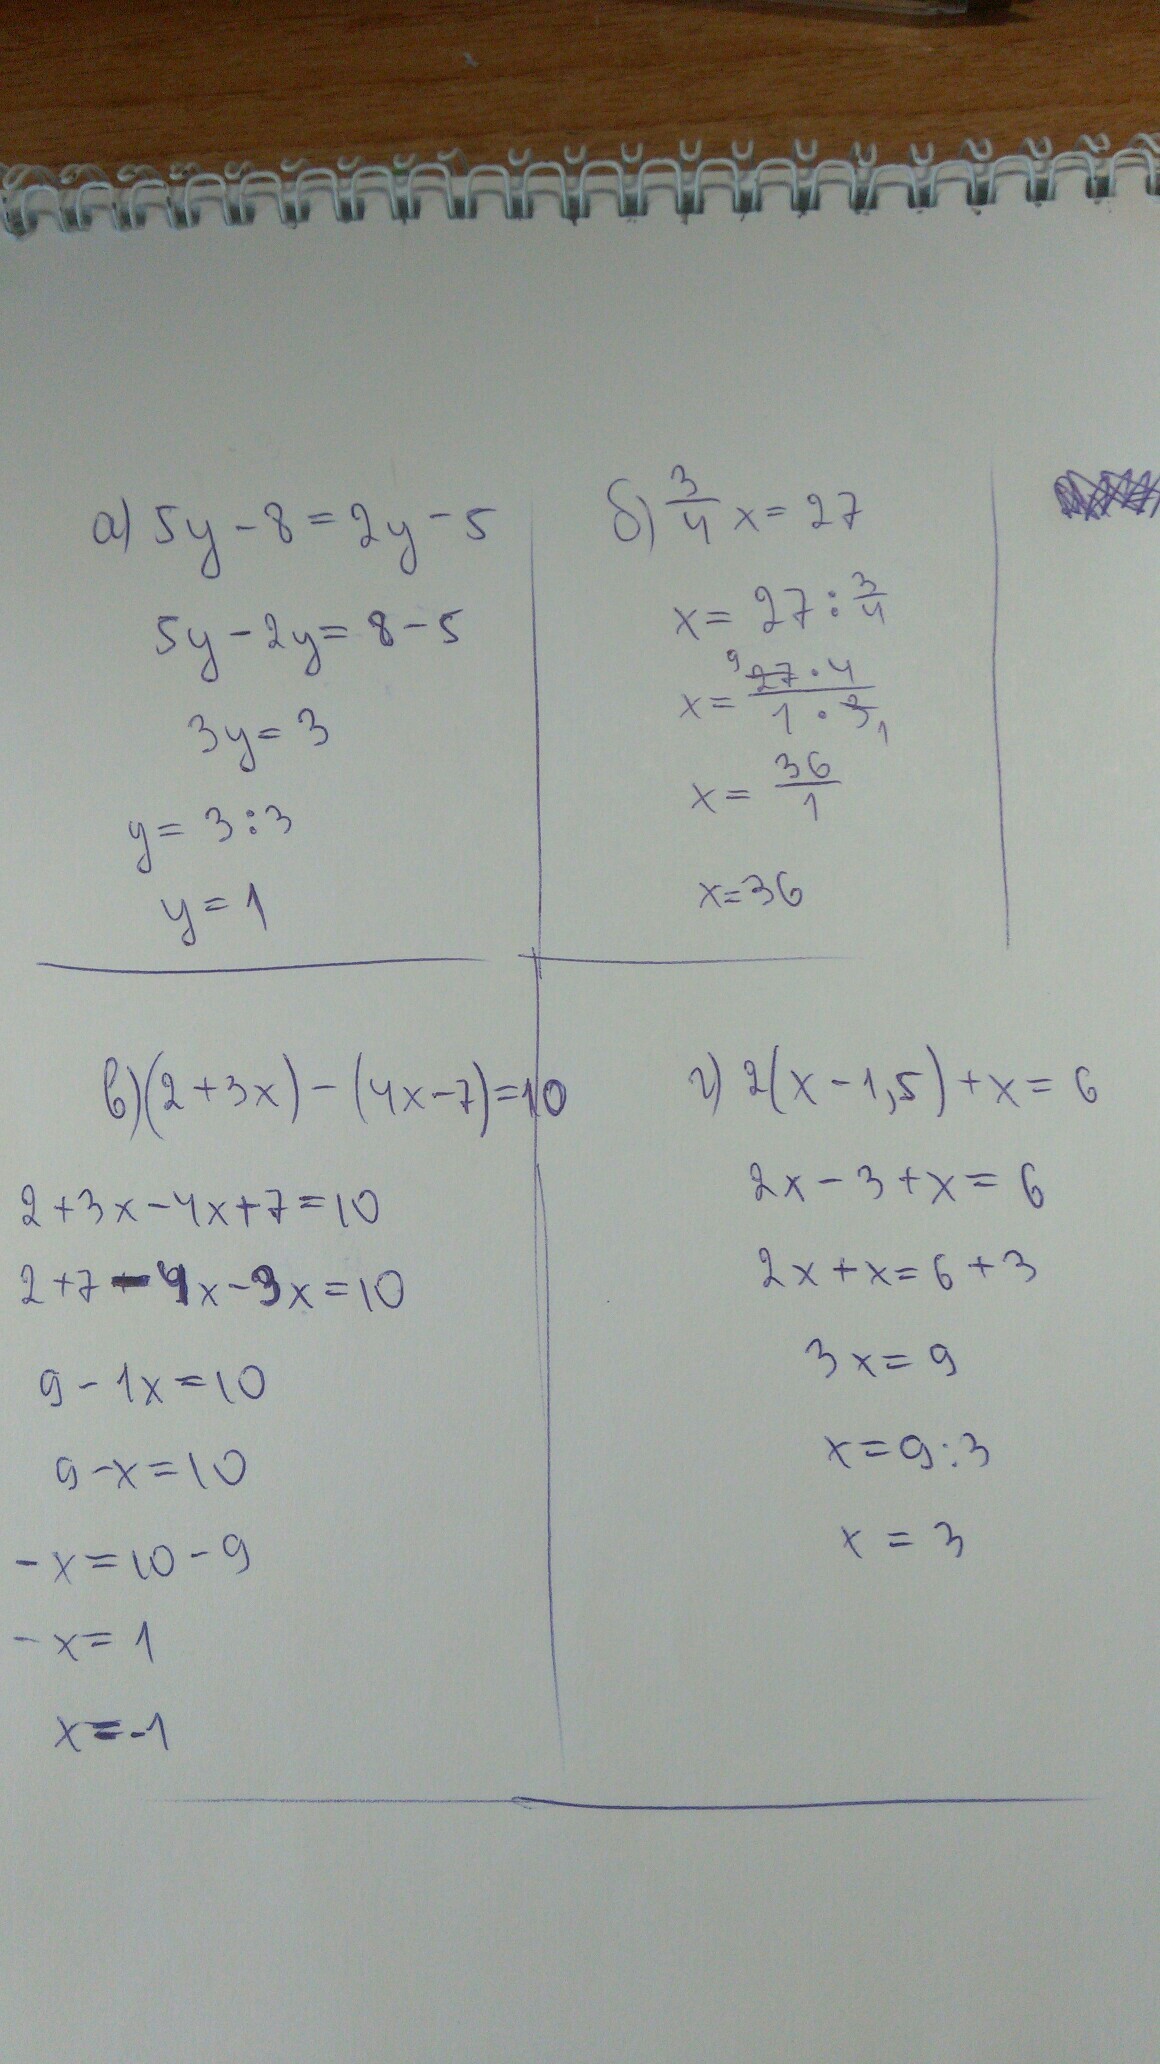 а) 5y - 8 = 2y - 5
5y - 2y = 8 - 5
3y = 3
y = 3 : 3
y = 1
б) 3/4 x = 27
x = 27 : 3/4
x = 9 27 · 4 / 1 · 3 1
x = 36/1
x = 36
в) (2 + 3x) - (4x - 7) = 10
2 + 3x - 4x + 7 = 10
2 + 7 - 4x - 3x = 10
9 - 1x = 10
9 - x = 10
- x = 10 - 9
- x = 1
x = -1
г) 2(x - 1,5) + x = 6
2x - 3 + x = 6
2x + x = 6 + 3
3x = 9
x = 9 : 3
x = 3